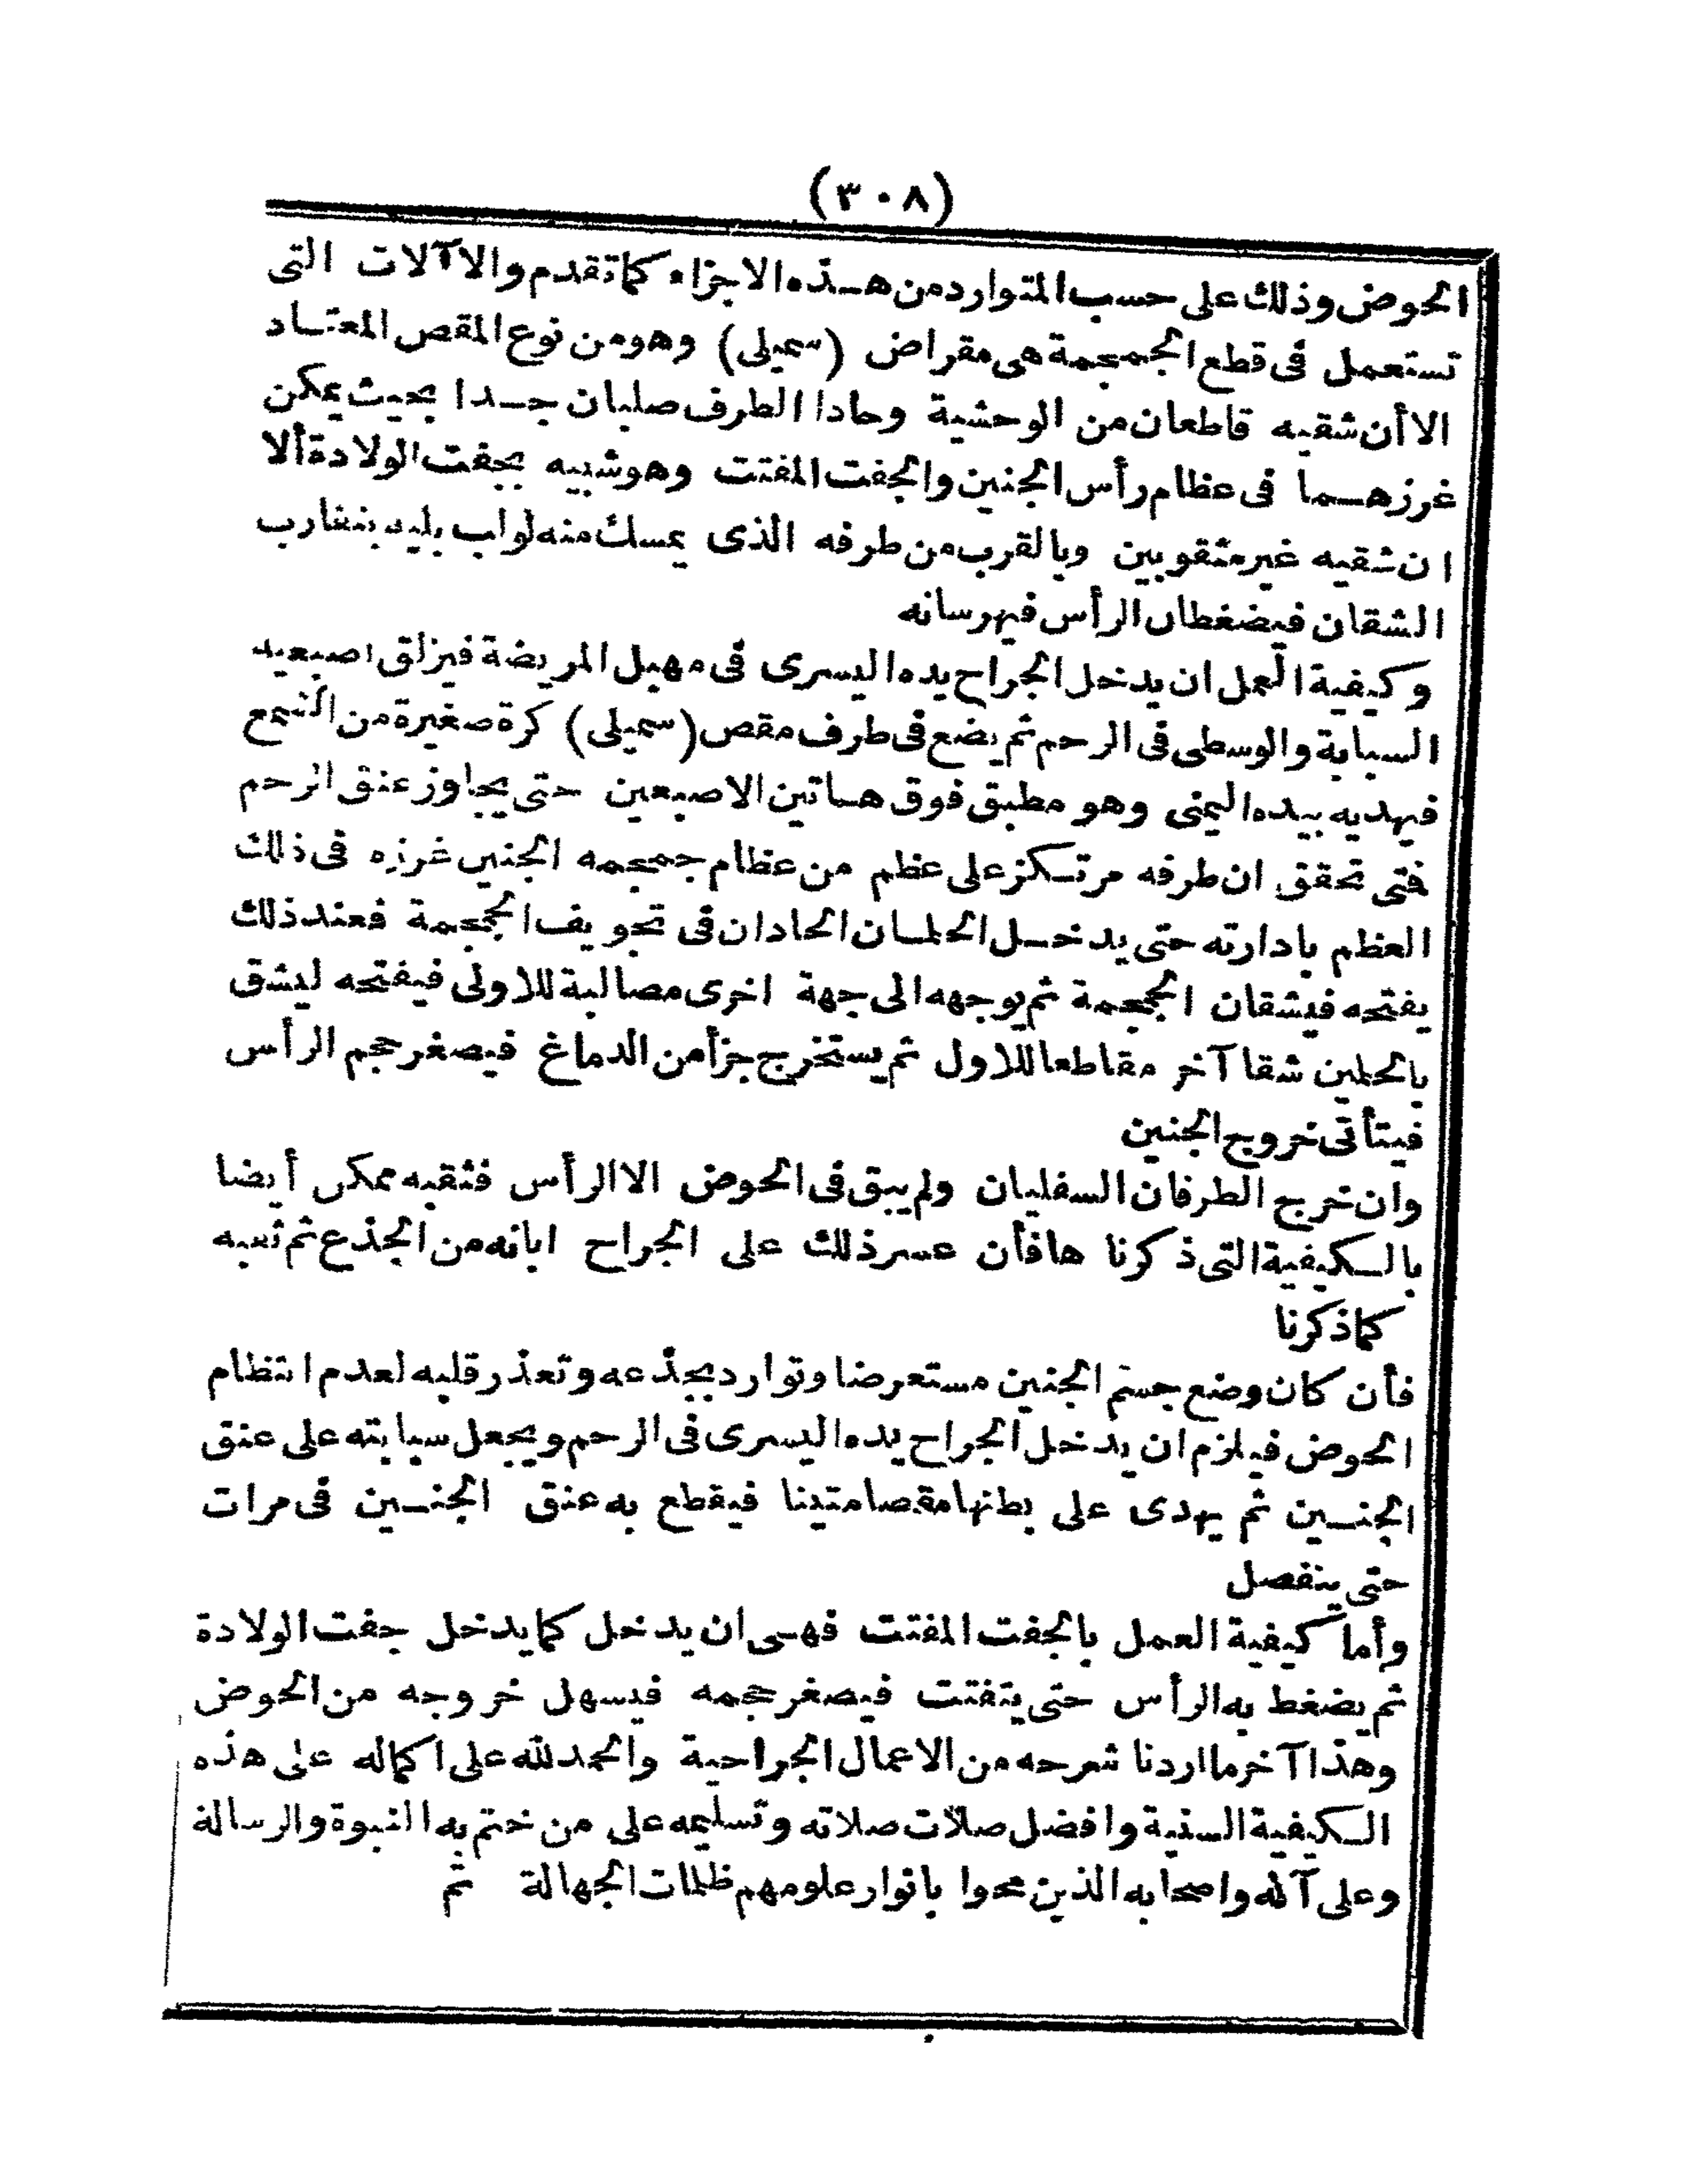 (٣٠٨)
الحوض وذلك على حسب المتوارد من هـذه الاجزاء كما تقدم والاآلات التى
تستعمل فى قطع الجمجمة هى مقراض (سميلى) وهو من نوع المقص المعتـاد
الا أن شقيه قاطعان من الوحشية وحادا الطرف صلبان جـدا بحيث يمكن
غرزهـما فى عظام رأس الجنين والجفت المفتت وهو شبيه بجفت الولادة ألا
ان شقيه غير مثقوبين وبالقرب من طرفه الذى يمسك منه لولب يليه بتقارب
الشقان فيضغطان الرأس فيهرسانه
وكيفية العمل ان يدخل الجراح يده اليسرى فى مهبل المريضة فيزلق اصبعيه
السبابة والوسطى فى الرحم ثم يضع فى طرف مقص (سميلى) كرة صغيرة من الشمع
فيهديه بيده اليمنى وهو مطبق فوق هـاتين الاصبعين حتى يجاوز عنق الرحم
فتى تحقق ان طرفه مرتـكز على عظم من عظام جمجمه الجنين غرزه فى ذلك
العظم بادارته حتى يدخـل الحلمـان الحادان فى تجويف الجمجمة فعند ذلك
يفتحه فيشقان الجمجمة ثم يوجهه الى جهة اخرى مصالبة للاولى فيفتحه ليشق
بالحلمين شقا آخر مقاطعا للاول ثم يستخرج جزأ من الدماغ فيصغر حجم الرأس
فيتأتى خروج الجنين
وان خرج الطرفان السفليان ولم يبق فى الحوض الا الرأس فثقبه ممكن أيضا
بالـكيفية التى ذكرنا ها فأن عسر ذلك على الجراح ابانه من الجذع ثم ثقبه
كما ذكرنا
فأن كان وضع جسم الجنين مستعرضا وتوارد بجذعه وتعذر قلبه لعدم انتظام
الحوض فيلزم ان يدخل الجراح يده اليسرى فى الرحم ويجعل سبابته على عنق
الجنـين ثم يهدى على بطنها مقصا متينا فيقطع به عنق الجنـين فى مرات
حتى ينفصل
وأما كيفية العمل بالجفت المفتت فهـى ان يدخل كما يدخل جفت الولادة
ثم يضغط به الرأس حتى يتفتت فيصغر حجمه فيسهل خروجه من الحوض
وهذا آخر ما اردنا شرحه من الاعمال الجراحية والحمد لله على اكماله على هذه
الـكيفية السنية وافضل صلات صلاته وتسليمه على من ختم به النبوة والرسالة
وعلى آله واصحابه الذين محوا بانوار علومهم ظلمات الجهالة تم